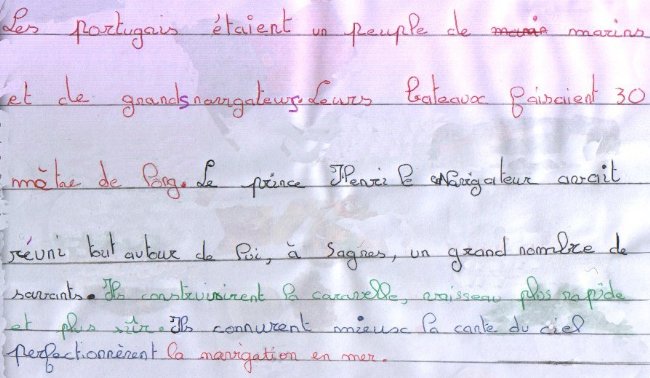 Les portugais étaient un peuple de marins
et de grands navigateurs. Leurs bateaux faisaient 30
mètre de long. Le prince Henri le Navigateur avait
réuni tout autour de lui, à Sagres, un grand nombre de
savants. Ils construisirent la caravelle, vaisseau plus rapide
et plus sûr. Ils connurent mieux la carte du ciel
perfectionnèrent la navigation en mer.